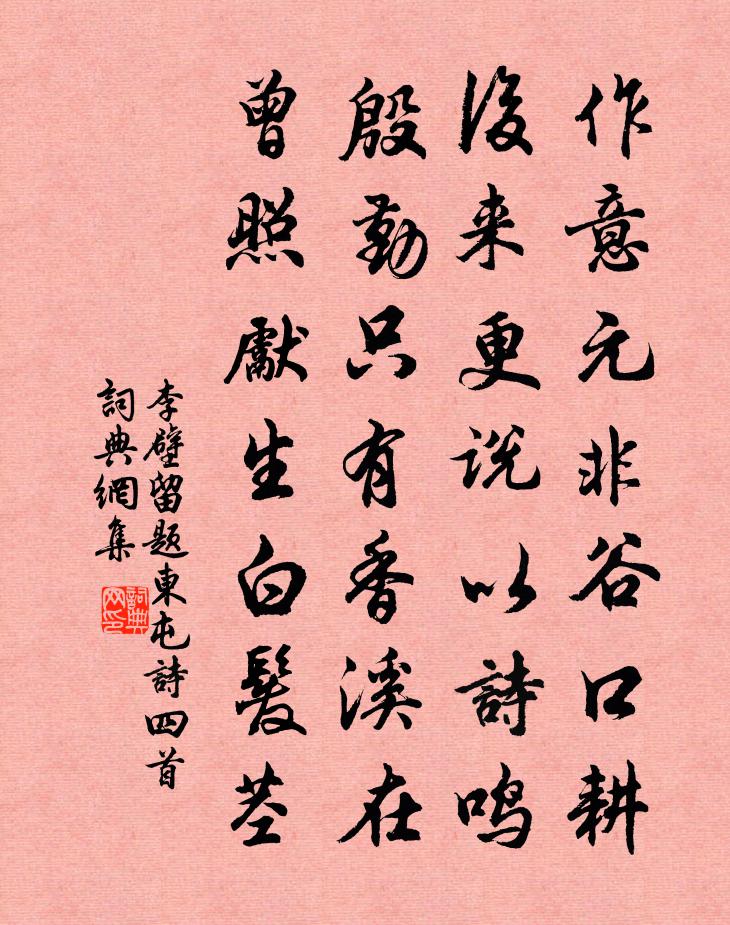 作意元非谷口耕
後来更说以詩鳴
殷勤只有香溪在
曾照獻生白髮茎
李壁留题東屯詩四首
詞典網集
詞典网印